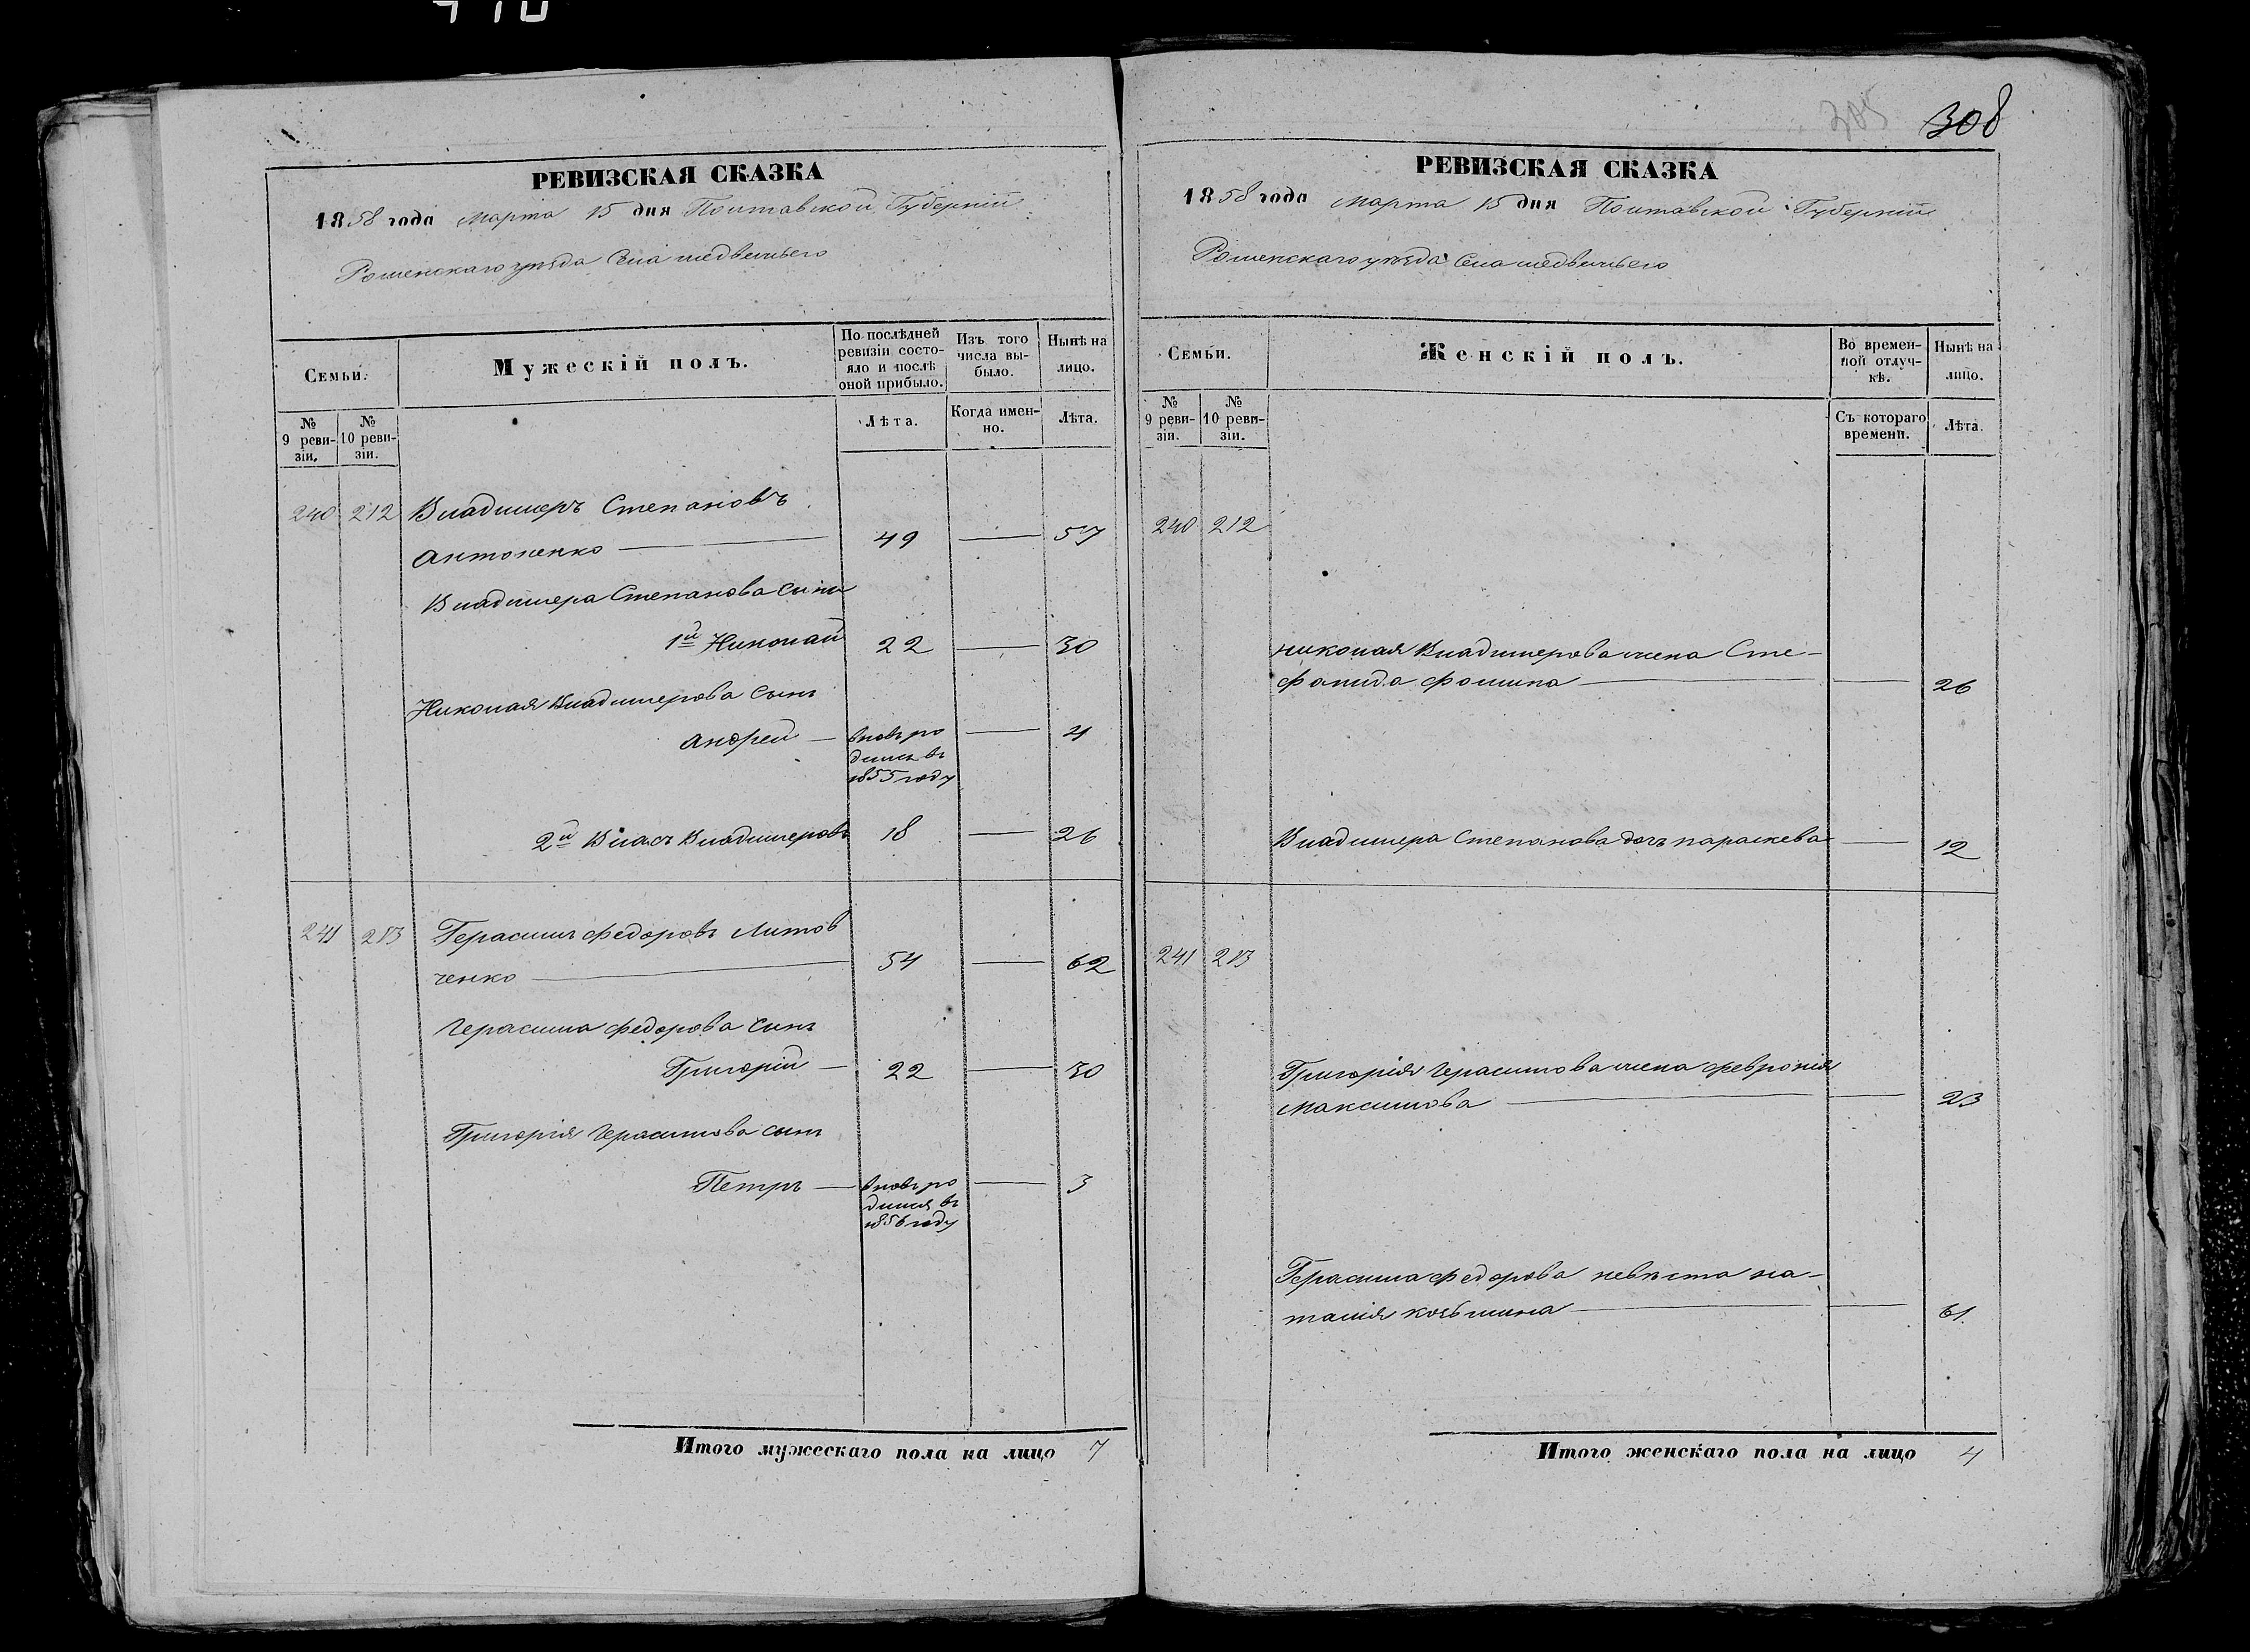 308
РЕВИЗСКАЯ СКАЗКА
1858 года Марта 15 дня Полтавской Губерніи
Роменскаго уѣзда Села медвежьего
Семьи.
Мужескій полъ.
По послѣдней ревизіи состояло и послѣ оной прибыло.
Изъ того числа выбыло.
Нынѣ на лицо.
№ 9 ревизіи.
№ 10 ревизіи.
Лѣта.
Когда именно.
Лѣта.
240 212 Владимеръ Степановъ
Антоненко 49 — 57
Владимера Степанова сыны
1й Николай 22 — 30
Николая Владимерова сынъ
Андрей — вновь ро — 4
дился въ
1855 году
2й Власъ Владимеровъ 18 — 26
241 213 Герасимъ Федоровъ Литов
ченко 54 — 62
Герасима Федорова сынъ
Григорій — 22 — 30
Григорія Герасимова сынъ
Петръ — вновь ро — 3
дился въ
1856 году
Итого мужескаго пола на лицо 7
РЕВИЗСКАЯ СКАЗКА
1858 года Марта 15 дня Полтавской Губерніи
Роменскаго уѣзда Села медвежьего
Семьи.
Женскій полъ.
Во временной отлучкѣ.
Нынѣ на лицо.
№ 9 ревизіи.
№ 10 ревизіи.
Съ котораго времени.
Лѣта.
240 212
николая Владимерова жена Сте-
фанида Фомина — 26
Владимера Степанова дочь параскева — 12
241 213
Григорія Герасимова жена Февронія
Максимова — 23
Герасима Федорова невѣста на-
талія козьмина — 61
Итого женскаго пола на лицо 4